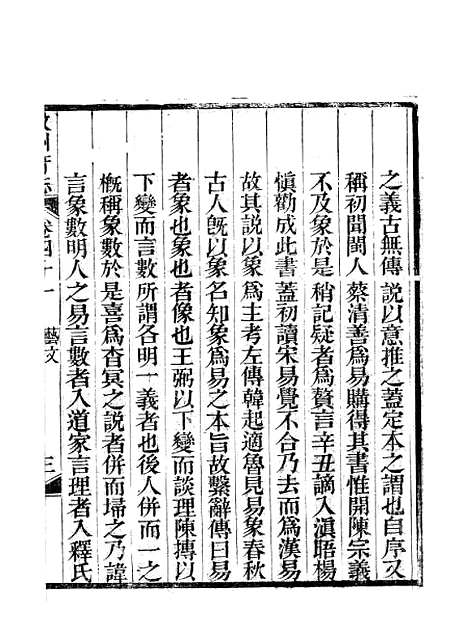 之義古無傳說以意推之蓋定本之謂也自序又
稱初聞閩人蔡清善爲易購得其書惟開陳宗義
不及象於是稍記疑者爲贅言辛丑謫入滇晤楊
愼勸成此書蓋初讀宋易覺不合乃去而爲漢易
故其說以象爲主考左傳韓起適魯見易象春秋
古人旣以象名知象爲易之本旨故繫辭傳曰易
者象也象也者像也王弼以下變而談理陳摶以
下變而言數所謂各明一義者也後人併而一之
槪稱象數於是喜爲杳冥之說者併而埽之乃諱
言象數明人之易言數者入道家言理者入釋氏
卷四十一
藝文
三